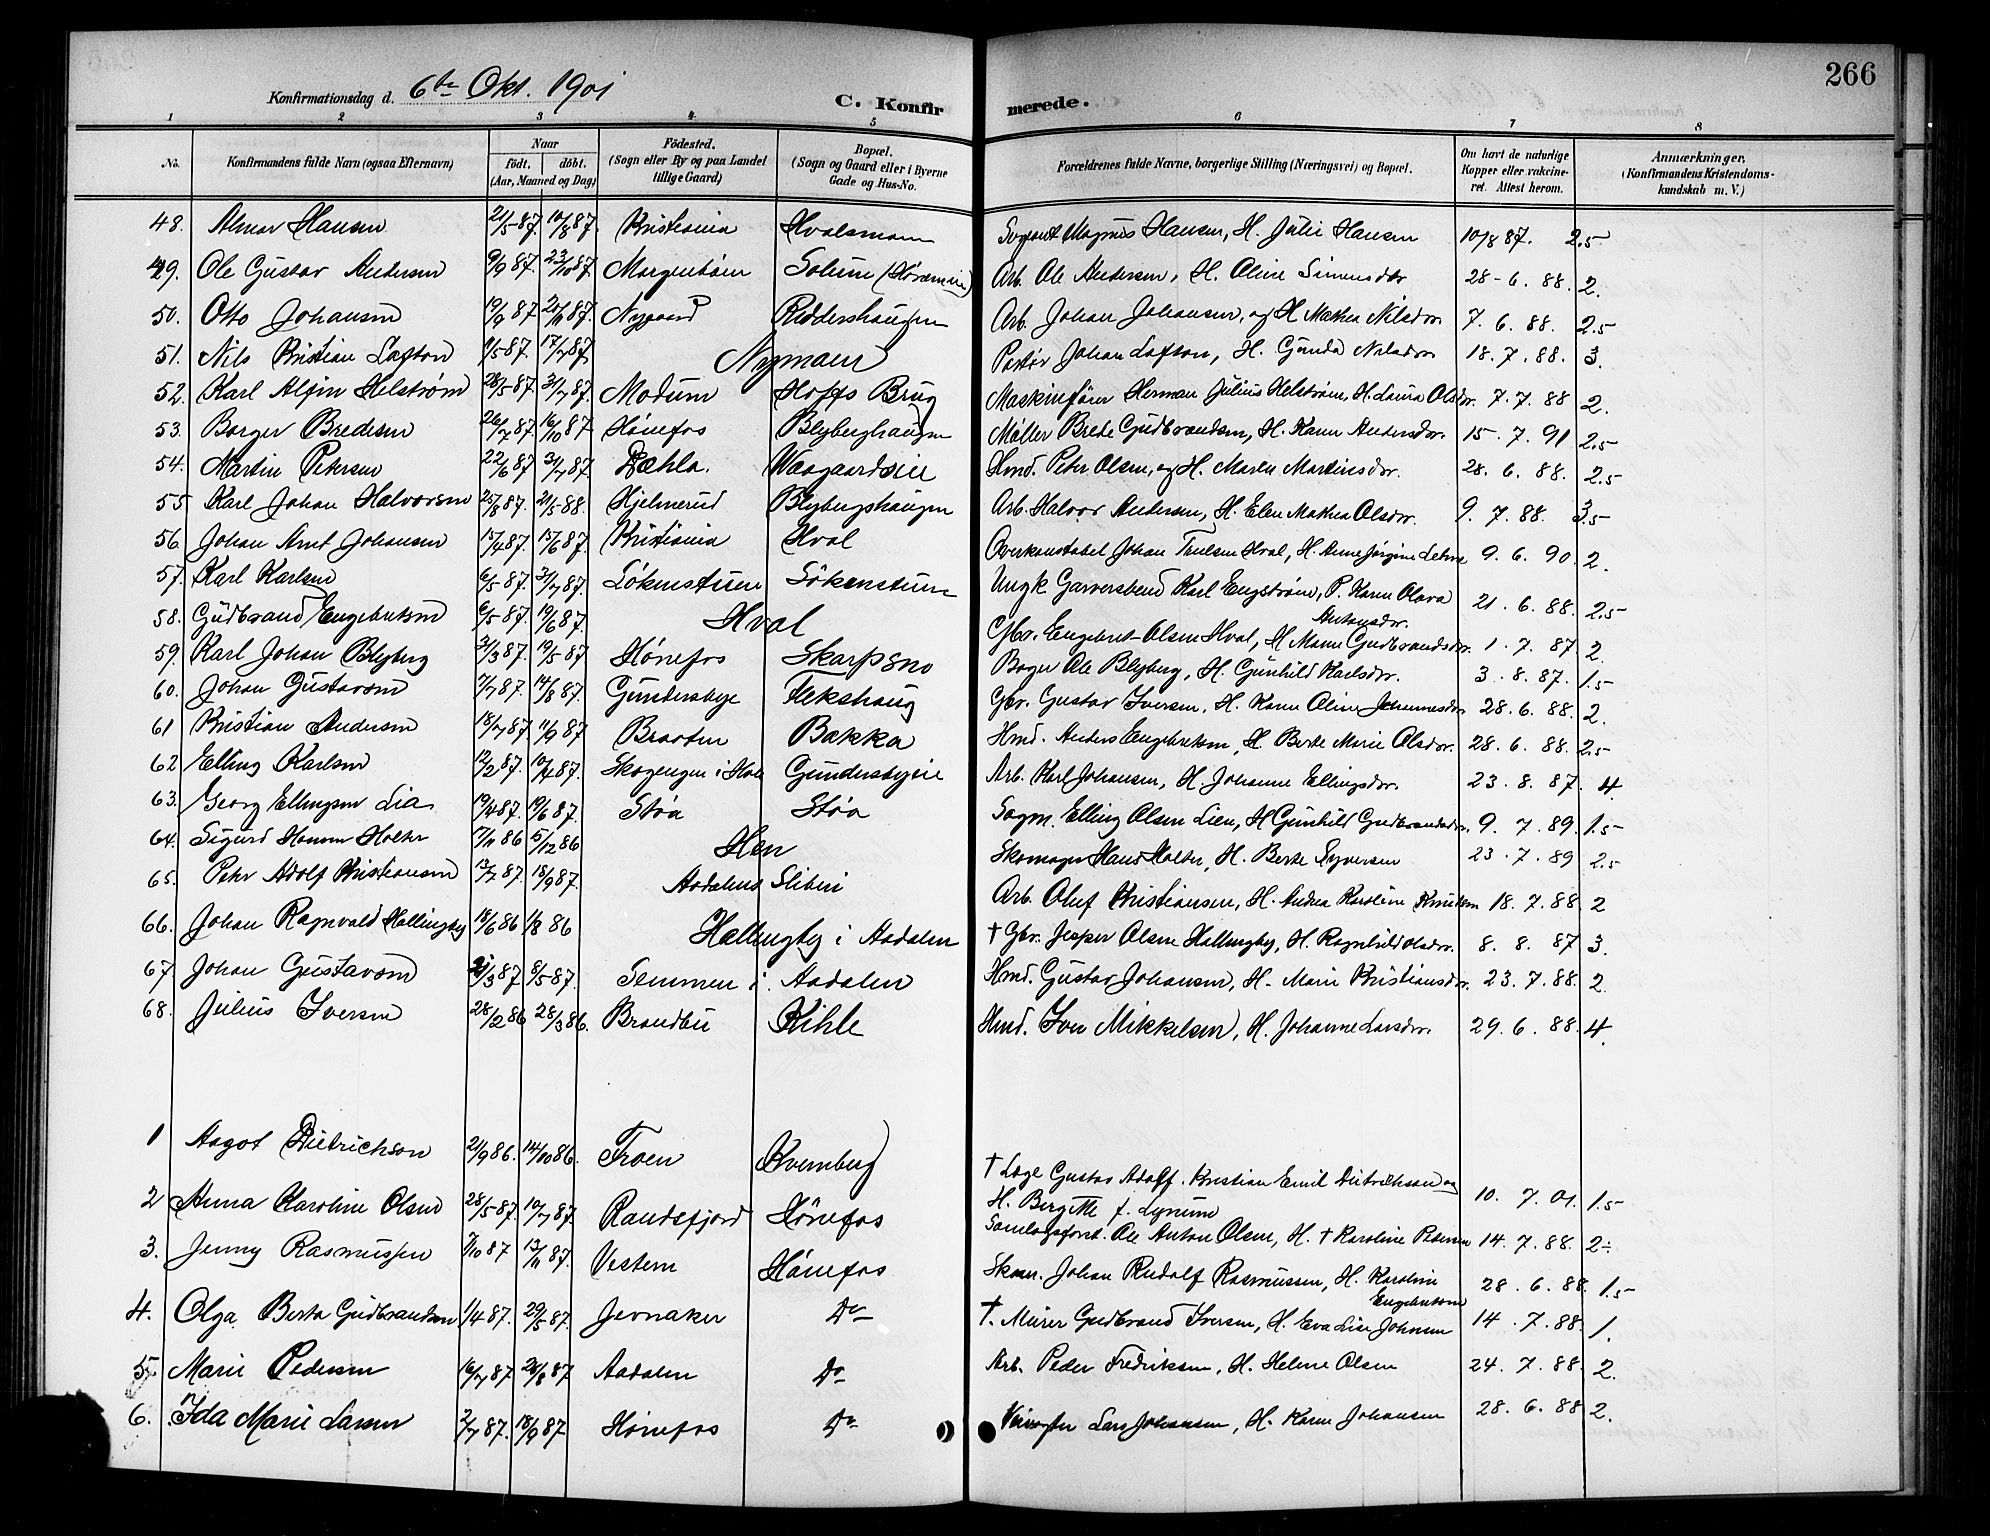 266
Konfirmationsdag d. 6te Okt. 1901
C. Konfirmerede.
1 2 3 4 5 6 7 8
No. Konfirmandens fulde Navn (ogsaa Efternavn) Naar født. døbt. (Aar, Maaned og Dag) Födested. (Sogn eller By og paa Landet tillige Gaard) Bopæl. (Sogn og Gaard eller i Byerne Gade og Hus-No. Forældrenes fulde Navne, borgerlige Stilling (Næringsvei) og Bopæl. Om havt de naturlige Kopper eller vakcineret. Attest herom. Anmærkninger. (Konfirmandens Kristendomskundskab m. V.)
48. Almar Hansen 21/5 87. 10/8 87. Kristiania Hvalsmoen Magnus Hansen, H. Julie Hansen 10/8 87. 2.5
49. Ole Gustav Andersen 9/9 87. 23/10 87. Solum Arb. Ole Andersen, H. Oline Simensdtr 28-6. 88. 2.
50. Otto Johansen 19/9 87. 20/11 87. Nygaard Riddershaugen Arb. Johan Johansen, og H Mathea Nilsdtr. 7. 6. 88. 2.5
51. Nils Kristian Lofton 9/5 87. 17/7 87. Nymoen Johan Lofton, H. Gunda Nilsdtr. 18. 7. 88. 3.
52. Karl Alfin Helström 28/5 87. 31/7 87. Modum Hoffs Brug Maskinfører Herman Julius Helström, H. Laura Olsdtr. 7. 7. 88 2.
53. Borger Bredesen 26/7 87. 16/10 87 Hönefos Blyberghaugen Möller Brede Gudbrandsen, H. Karen Andersdtr. 15. 7. 91 2.5
54. Martin Petersen 22/6 87 31/7 87. Dæhla. Waagaardseie Hmd. Peter Olsen, og H. Maren Martinsdtr. 28. 6. 88. 2.5
55 Karl Johan Halvorsen 25/8 87. 21/5 88. Hjelmerud Blybergshaugen Arb. Halvor Andersen, H. Elen Mathea Olsdtr. 9. 7. 88. 3.5
56. Johan Arnt Johansen 15/4 87. 15/6 87. Kristiania Hval Overkonstabel Johan Hval, H. Anne Jörgine 9. 6. 90. 2.
57. Karl Karlsen 6/5 87. 31/7 87. Lökenstuen Lökenstuen Ungk Garversvend Karl Engström, P. Karen Olava Antonsdtr. 21. 6. 88. 2.5
58. Gudbrand Engebretsen 6/5 87. 19/6 87. Hval Gbr. Engebret Olsen Hval, H Maren Gudbrandsdtr. 1. 7. 87 2.
59. Karl Johan Blyberg 31/3 87. 19/5 87 Hönefos Skarpsno Bager Ole Blyberg, H. Gunhild Karlsdtr. 3. 8. 87. 1.5
60. Johan Gustavsen 7/7 87. 14/8 87. Gundersbye Flekshaug Gbr. Gustav Iversen, H. Karen Oline Johannesdtr 28. 6. 88. 2.
61 Kristian Andersen 18/7 87. 11/9 87 Braaten Bakka Hmd. Anders Engebretsen, H. Berte Marie Olsdtr. 28. 6. 88. 2.5
62 Elling Karlsen 12/2 87. 10/4 87. Gundersbyeie Arb. Karl Johansen, H. Johanne Ellingsdtr. 23. 8. 87. 4.
63. Georg Ellingsen Lia 19/4 87. 19/6 87. Støa Støa Elling Olsen Lien, H Gunhild Gudbrandsdtr. 9. 7. 89. 1.5
64. Sigurd Holter 17/11 86 5/12 86 Hen Skomager Hans Holter, H. Berte Syversen 23. 7. 89 2.5
65. Peter Adolf Kristiansen 13/7 87. 18/9 87. Aadalens Sliberi Arb. Oluf Kristiansen, H. Andrea Karoline Knutsen 18. 7. 88. 2
66. Johan Ragnvald Hallingby 18/6 86 1/8 86 Hallingby i Aadalen † Gbr. Jesper Olsen Hallingby, H. Ragnhild Olsdtr. 8. 8. 87 3.
67 Johan Gustavsen 21/3 87. 8/5 87. Semmen i Aadalen Hmd. Gustav Johansen, H. Marie Kristiansdtr. 23. 7. 88. 2.
68. Julius Iversen 28/2 86 28/3 86. Brandbu Kihle Hmd. Iver Mikkelsen, H. Johanne Larsdtr. 29. 6. 88. 4.
1 Aagot Dietrichson 21/9 86. 14/10 86. Froen Kvernberg † Læge Gustav Adolf Kristian Emil Dietrichson og H. Bergitte f. Lynum 10. 7. 01. 1.5
2 Anna Karoline Olsen 28/5 87. 10/7 87. Randsfjord Hönefos Ole Anton Olsen, H. † Karoline Pedersen 14. 7. 88. 2÷
3. Jenny Rasmussen 7/10 87 13/11 87. Vestern Hönefos Skom. Johan Rudolf Rasmussen, H. Karoline Engebretsen 28. 6. 88. 1.5
4. Olga Berta Gudbrandsen 1/4 87. 29/5 87. Jevnaker Do †. Murer Gudbrand Iversen, H. Eva Lise Johnsen 14. 7. 88. 1.
5. Marie Pedersen 16/7 87. 28/8 87 Aadalen Do Arb. Peder Fredriksen, H. Helene Olsen 24. 7. 88. 2.
6. Ida Marie Larsen 2/7 87. 18/9 87 Hönefos Do Lars Johansen, H. Karen Johansen 28. 6. 88 2.